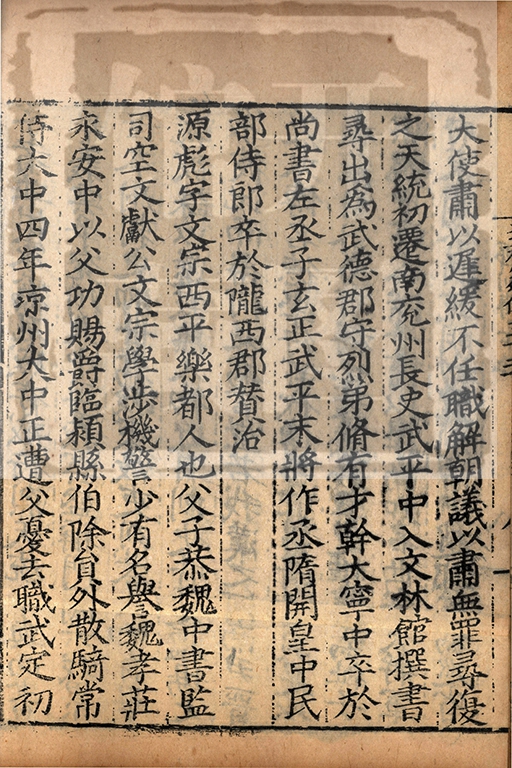 大使肅以遲緩不任職解朝議以肅無罪尋復
之天統初遷南兖州長史武平中入文林館撰書
尋出為武德郡守烈弟脩有才幹大寧中卒於
尚書左丞子玄正武平末將作丞隋開皇中民
部侍郎卒於隴西郡賛治
源彪字文宗西平樂都人也父子恭魏中書監
司空文獻公文宗學涉機警少有名譽魏孝莊
永安中以父功賜爵臨潁縣伯除員外散騎常
侍天平四年凉州大中正遭父憂去職武定初